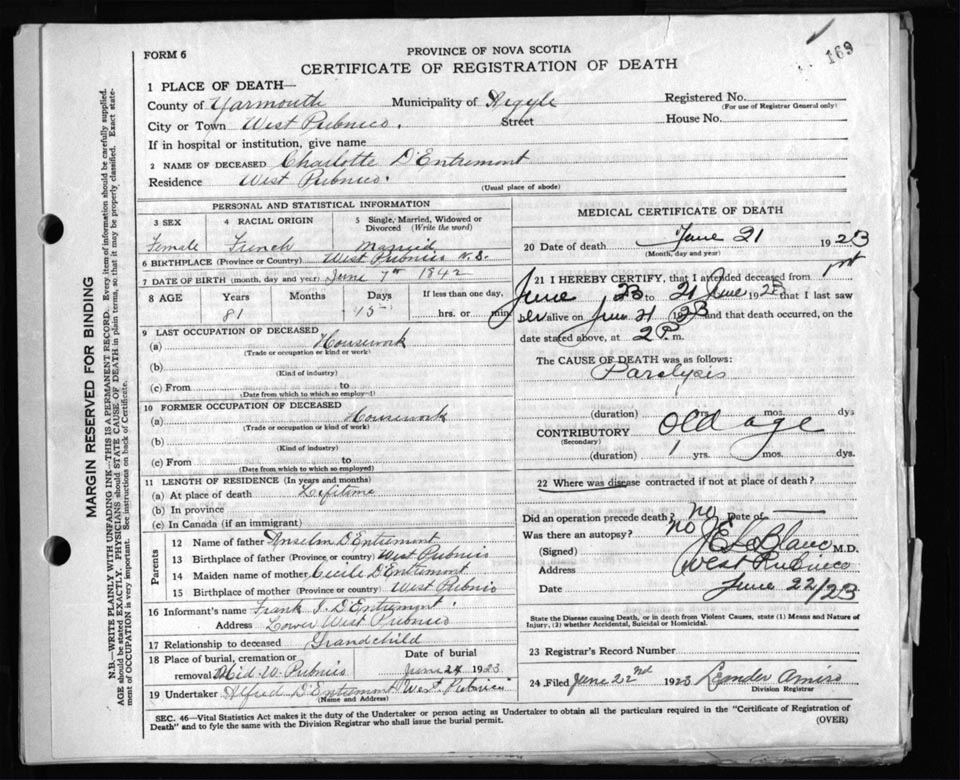 169
FORM 6
PROVINCE OF NOVA SCOTIA
CERTIFICATE OF REGISTRATION OF DEATH
1 PLACE OF DEATH—
County of Yarmouth Municipality of Argyle Registered No.
(For use of Registrar General only)
City or Town West Pubnico. Street House No.
If in hospital or institution, give name
2 NAME OF DECEASED Charlotte D'Entremont
Residence West Pubnico.
(Usual place of abode)
PERSONAL AND STATISTICAL INFORMATION
3 SEX 4 RACIAL ORIGIN 5 Single, Married, Widowed or Divorced (Write the word)
Female French Married
6 BIRTHPLACE (Province or Country) West Pubnico N.S.
7 DATE OF BIRTH (month, day and year) June 7th 1842
8 AGE Years Months Days If less than one day,
81 15 hrs. or min.
9 LAST OCCUPATION OF DECEASED
(a) Housework
(Trade or occupation or kind of work)
(b)
(Kind of industry)
(c) From to
(Date from which to which so employed)
10 FORMER OCCUPATION OF DECEASED
(a) Housework
(Trade or occupation or kind of work)
(b)
(Kind of industry)
(c) From to
(Date from which to which so employed)
11 LENGTH OF RESIDENCE (In years and months)
(a) At place of death Lifetime
(b) In province
(c) In Canada (if an immigrant)
Parents
12 Name of father Anselm D'Entremont
13 Birthplace of father (Province or country) West Pubnico
14 Maiden name of mother Cecile D'Entremont
15 Birthplace of mother (Province or country) West Pubnico
16 Informant's name Frank I. D'Entremont
Address Lower West Pubnico
17 Relationship to deceased Grandchild
18 Place of burial, cremation or removal Mid. W. Pubnico Date of burial June 24 1923
19 Undertaker Alfred D'Entremont West Pubnico
(Name and Address)
MEDICAL CERTIFICATE OF DEATH
20 Date of death June 21 1923
(Month, day and year)
21 I HEREBY CERTIFY, that I attended deceased from 1st
June 23 to 21 June 1923 that I last saw
her alive on June 21 1923 and that death occurred, on
date stated above, at 2 P. m.
The CAUSE OF DEATH was as follows:
Paralysis
(duration) yrs. mos. dys
CONTRIBUTORY Old age
(Secondary)
(duration) 1 yrs. mos. dys.
22 Where was disease contracted if not at place of death?
Did an operation precede death? no Date of —
Was there an autopsy? no
(Signed) LeBlanc M.D.
Address West Pubnico
Date June 22/23
State the Disease causing Death, or in death from Violent Causes, state (1) Means and Nature of Injury, (2) whether Accidental, Suicidal or Homicidal.
23 Registrar's Record Number
24 Filed June 22nd 1923 Leander Amiro
Division Registrar
SEC. 46—Vital Statistics Act makes it the duty of the Undertaker or person acting as Undertaker to obtain all the particulars required in the "Certificate of Registration of
Death" and to fyle the same with the Division Registrar who shall issue the burial permit. (OVER)
MARGIN RESERVED FOR BINDING
N.B.—WRITE PLAINLY WITH UNFADING INK—THIS IS A PERMANENT RECORD. Every item of information should be carefully supplied.
AGE should be stated EXACTLY. PHYSICIANS should STATE CAUSE OF DEATH in plain terms, so that it may be properly classified. Exact statement of OCCUPATION is very important. See instructions on back of Certificate.